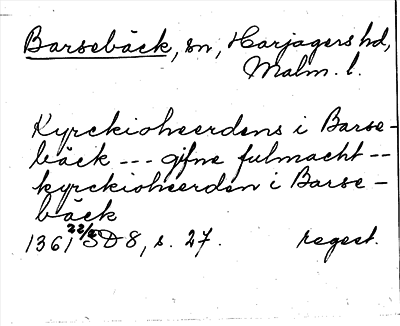 Barsebäck, sn, Harjagers hd,
Malm. l.
Kyrckioheerdens i Barse-
bäck --- gifne fulmacht --
kyrckioheerden i Barse-
bäck
1361 22/5 SD 8, s. 27. regest.